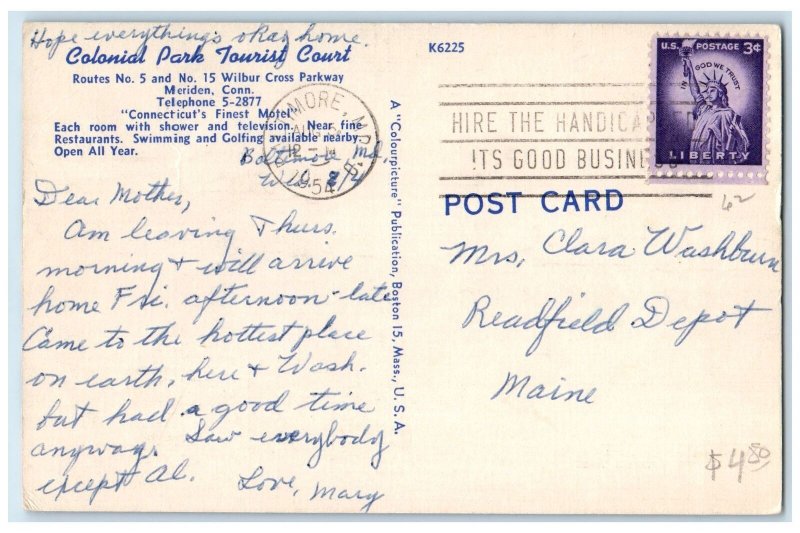 Hope everything's okay home.
Colonial Park Tourist Court
Routes No. 5 and No. 15 Wilbur Cross Parkway
Meriden, Conn.
Telephone 5-2877
"Connecticut's Finest Motel"
Each room with shower and television. Near fine
Restaurants. Swimming and Golfing available nearby.
Open All Year.
Baltimore Md.
Wed. 8/4
Dear Mother,
Am leaving Thurs.
morning + will arrive
home Fri. afternoon-late
Came to the hottest place
on earth, here + Wash.
but had a good time
anyway. Saw everybody
except Al.
Love, Mary
A "Colourpicture" Publication, Boston 15, Mass., U. S. A.
K6225
MORE, MD.
AUG
1954
HIRE THE HANDICA
ITS GOOD BUSIN
U.S. POSTAGE 3¢
IN GOD WE TRUST
LIBERTY
POST CARD
62
Mrs. Clara Washburn
Readfield Depot
Maine
$4.50